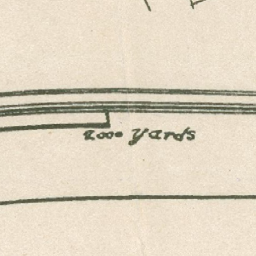 2000 yards